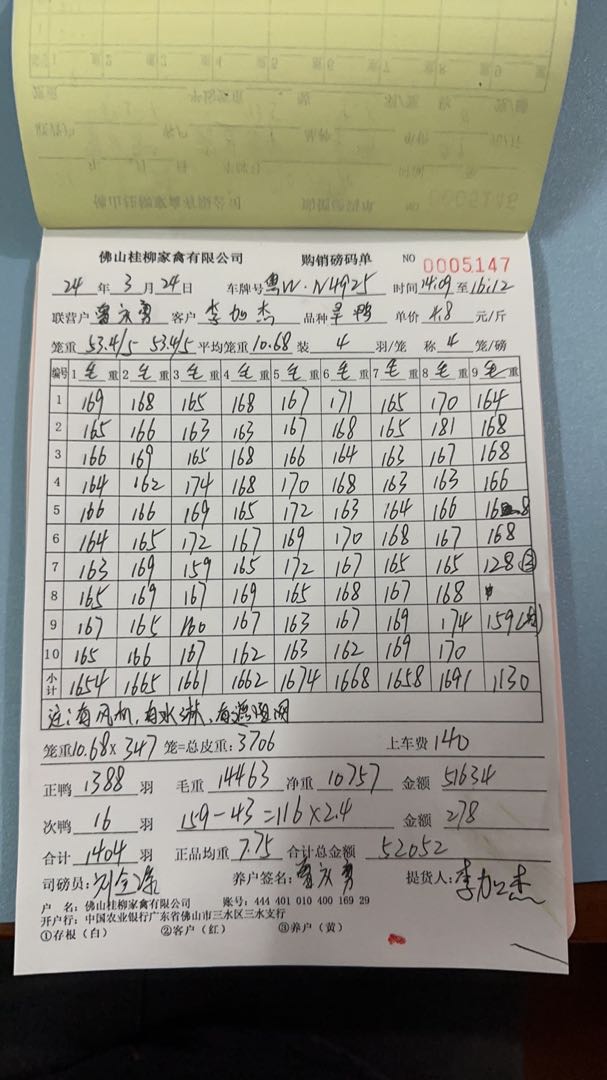 佛山桂柳家禽有限公司 购销磅码单 NO 0005147
24 年 3 月 24 日 车牌号 粤W·N4925 时间 14:09 至 16:12
联营户 客户 李加杰 品种 旱鸭 单价 4.8 元/斤
笼重 53.4/5 53.4/5 平均笼重 10.68 装 4 羽/笼 称 4 笼/磅
编号 1 毛 重 2 毛 重 3 毛 重 4 毛 重 5 毛 重 6 毛 重 7 毛 重 8 毛 重 9 毛 重
1 169 168 165 168 167 171 165 170 164
2 165 166 163 163 167 168 165 181 168
3 166 169 165 168 166 164 163 167 168
4 164 162 174 168 170 168 163 163 166
5 166 166 169 165 172 163 164 166 168
6 164 165 172 167 169 170 168 167 168
7 163 169 159 165 172 167 165 165 128 ③
8 165 169 167 169 165 168 167 168
9 167 165 160 167 163 167 169 174 159
10 165 166 167 162 163 162 169 170
小计 1654 1665 1661 1662 1674 1668 1658 1691 1130
注:有风机,有水淋,有遮阳网
笼重 10.68 × 347 笼=总皮重: 3706 上车费 140
正鸭 1388 羽 毛重 14463 净重 10757 金额 51634
次鸭 16 羽 159-43=116×2.4 金额 278
合计 1404 羽 正品均重 7.75 合计总金额 52052
司磅员: 养户签名: 提货人: 李加杰
户 名: 佛山桂柳家禽有限公司 账号: 444 401 010 400 169 29
开户行: 中国农业银行广东省佛山市三水区三水支行
①存根(白) ②客户(红) ③养户(黄)